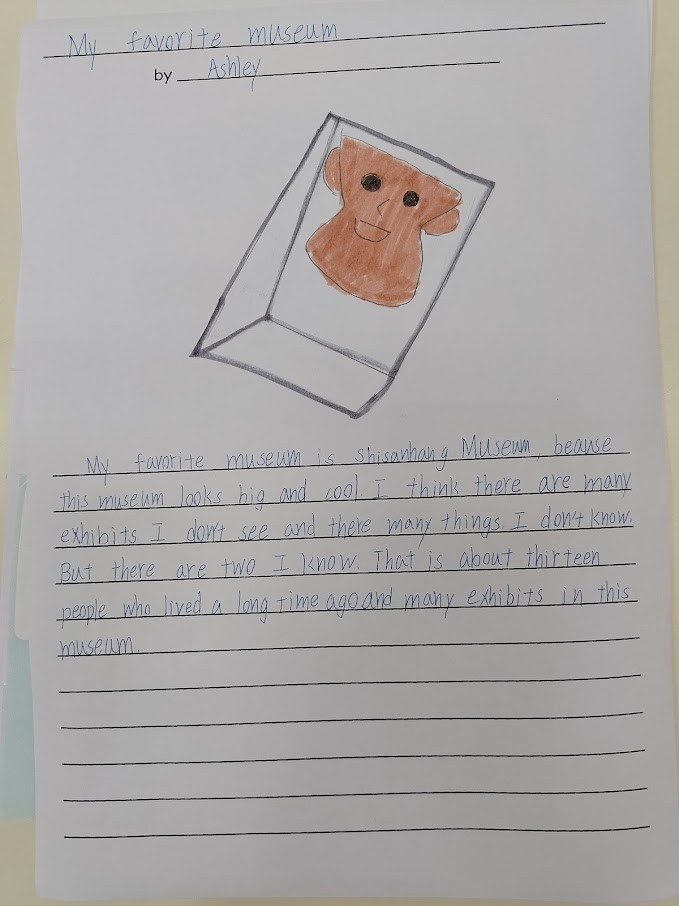 My favorite museum
by Ashley
My favorite museum is Shisanhang Museum, beause
this museum looks big and cool. I think there are many
exhibits I don't see and there many things. I don't know.
But there are two I know. That is about thirteen
people who lived a long time ago and many exhibits in this
museum.